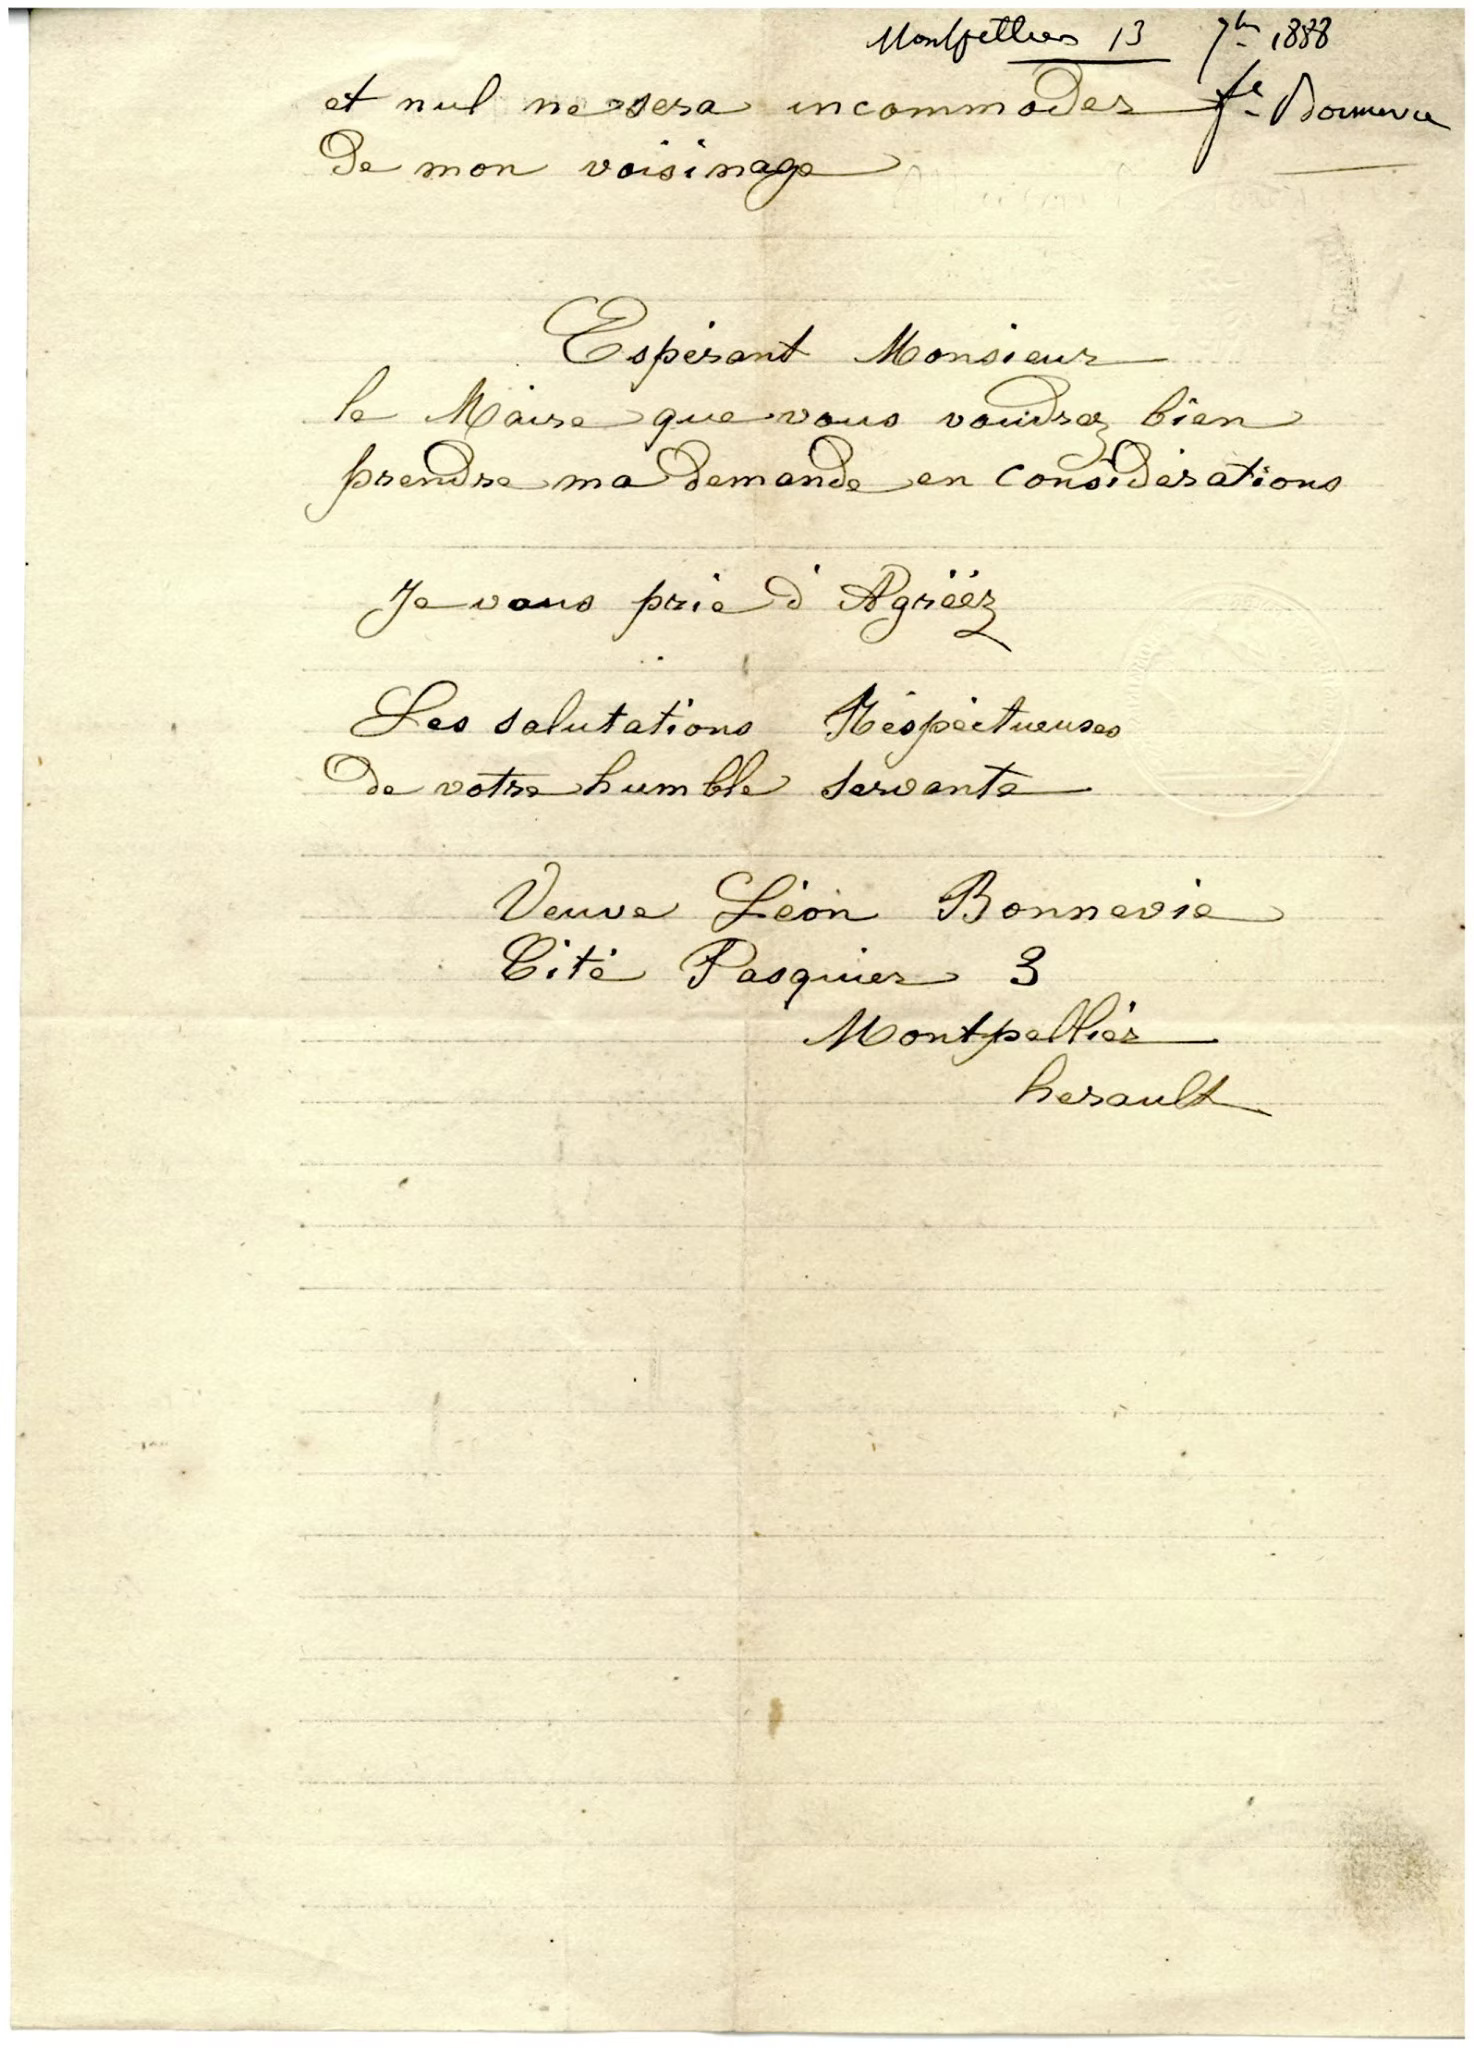 Montpellier 13 7bre 1888
fe Bonnevie
et nul ne sera incommoder
de mon voisinage
Espérant Monsieur
le Maire que vous voudrez bien
prendre ma demande en considérations
Je vous prie d'Agréez
Les salutations Réspéctueuses
de votre humble servante
Veuve Léon Bonnevie
Cité Pasquier 3
Montpelliér
herault